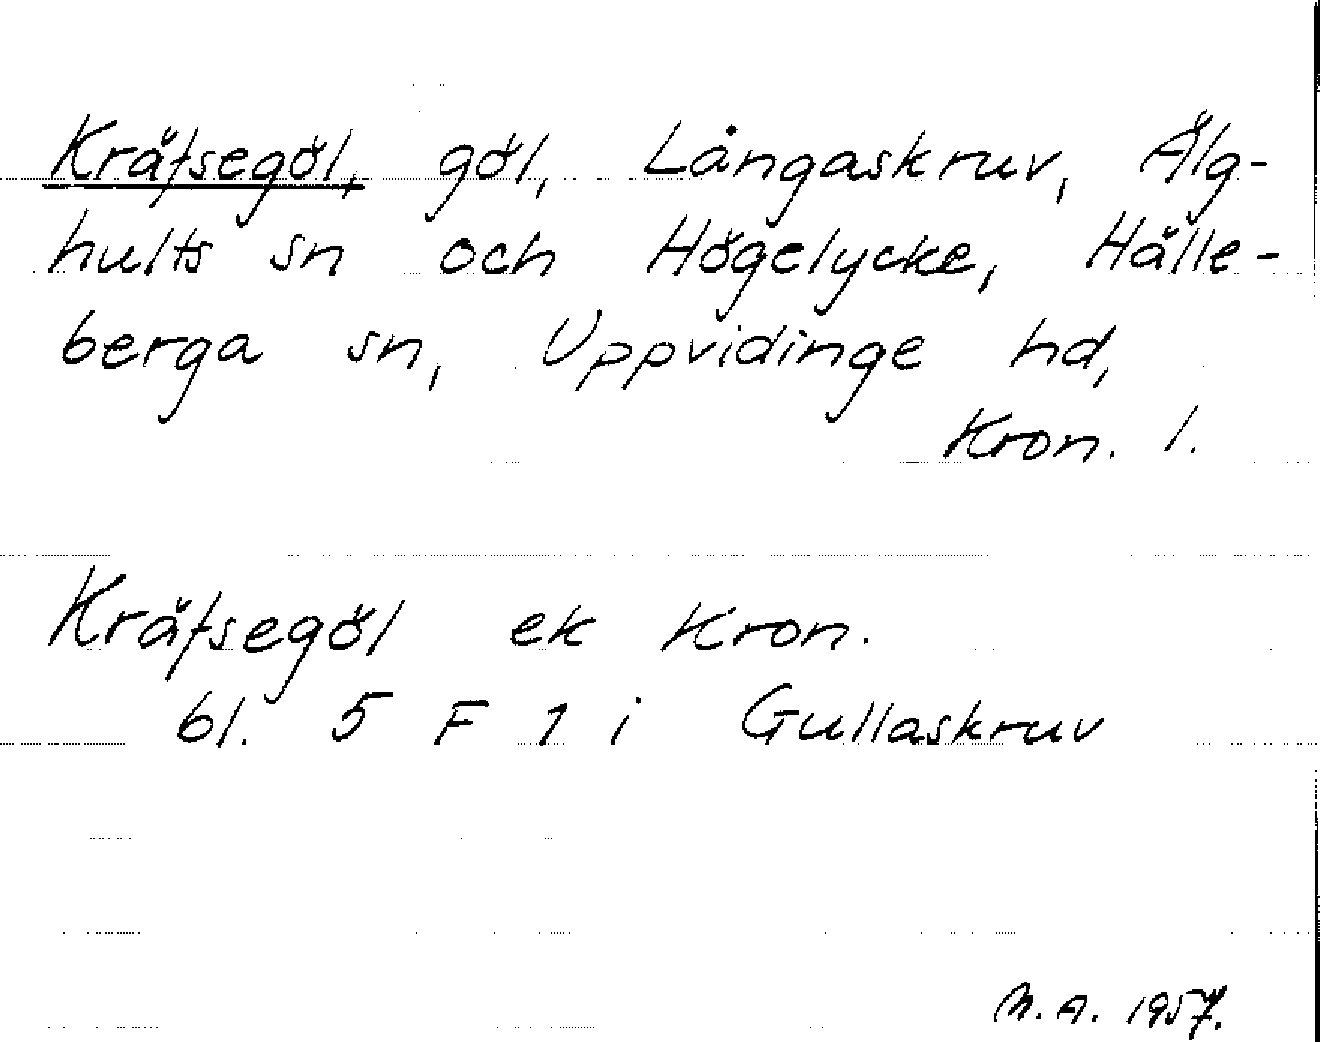 Kräftsegöl, göl, Långaskruv, Älg-
hults sn och Högelycke, Hälle-
berga sn, Uppvidinge hd,
Kron. l.
Kräftsegöl ek Kron.
bl. 5 F 1 i Gullaskruv
M. A. 1957.